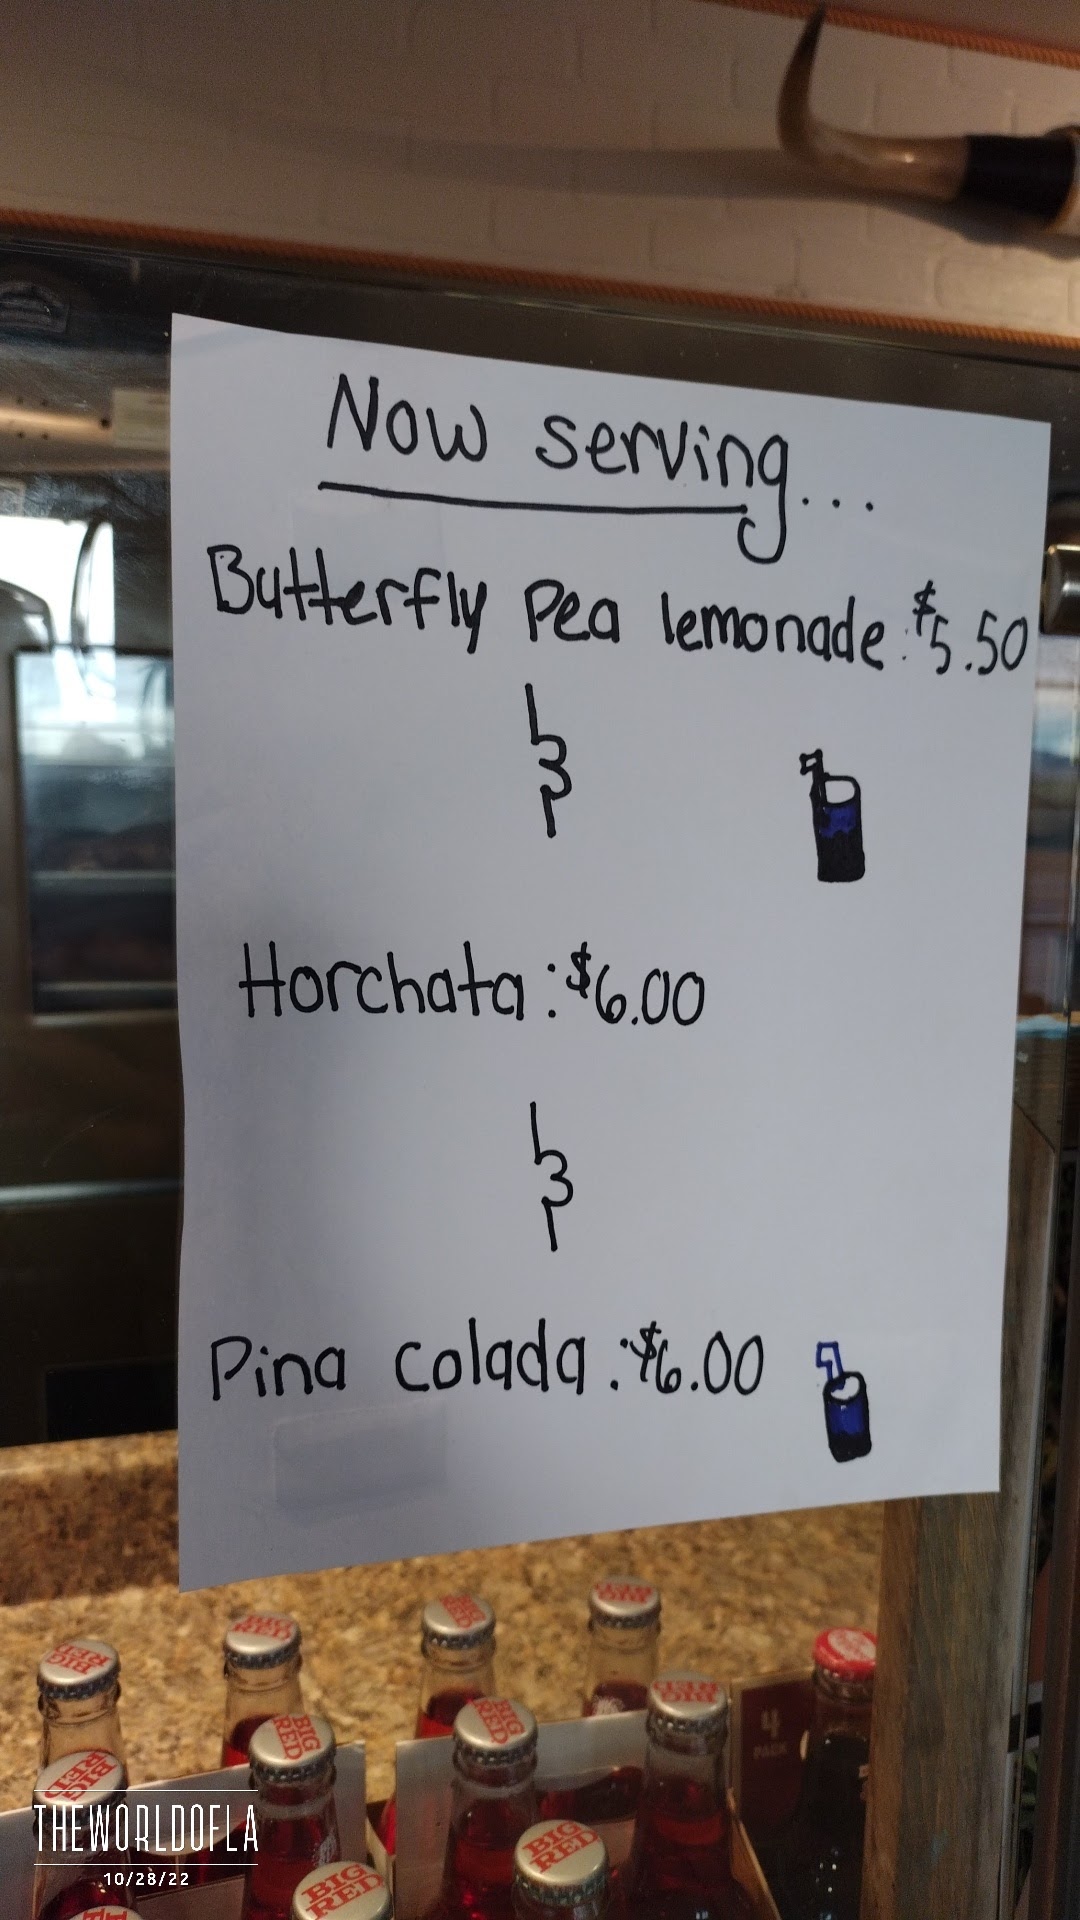 Now serving...
Butterfly Pea lemonade: $5.50
Horchata: $6.00
Pina colada: $6.00
BIG RED
BIG RED
BIG RED
BIG RED
BIG RED
BIG RED
BIG RED
BIG RED
BIG RED
BIG RED
4
PACK
THEWORLDOFLA
10/28/22